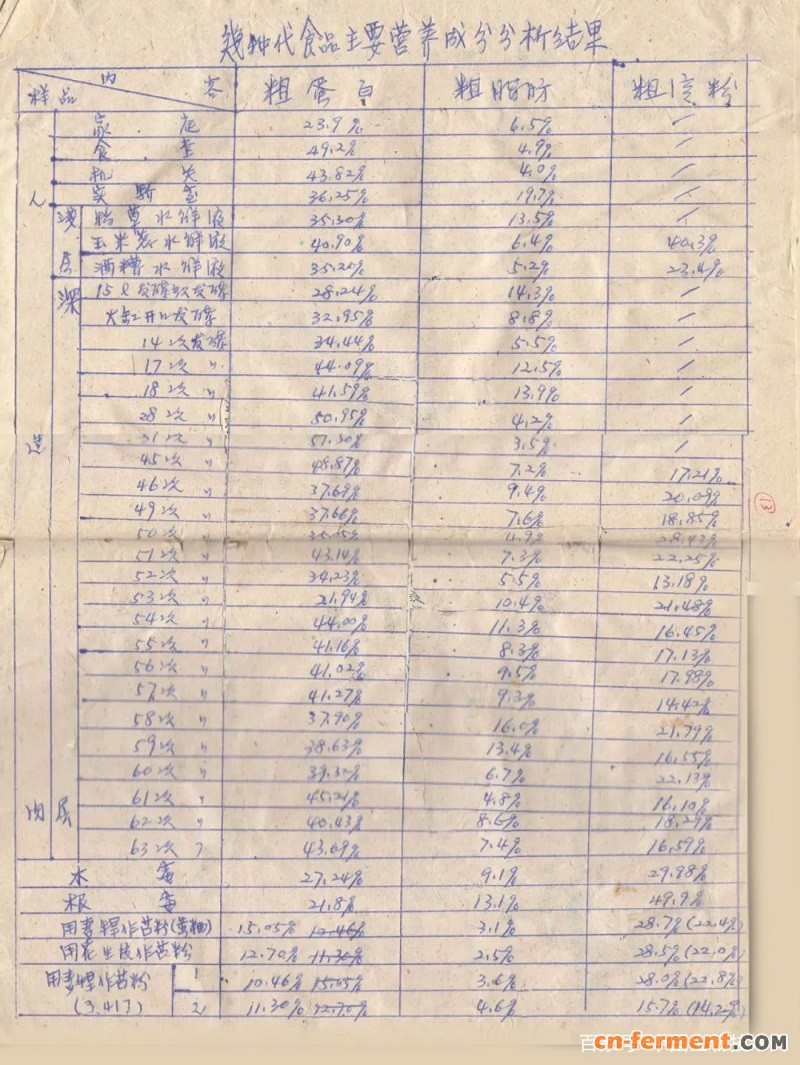 几种代食品主要营养成分分析结果
样品 内容 粗蛋白 粗脂肪 粗淀粉
人造肉
浅层
深层
家庭 23.9% 6.5% /
食堂 49.2% 4.9% /
机关 43.82% 4.0% /
实验室 36.25% 19.7% /
稻草水解液 35.30% 13.5% /
玉米蕊水解液 40.90% 6.4% 40.3%
酒糟水解液 35.20% 5.2% 23.4%
15l发酵缸发酵 28.24% 14.3% /
大缸开口发酵 32.95% 8.8% /
14次发酵 34.44% 5.5% /
17次 〃 44.09% 12.5% /
18次 〃 41.59% 13.9% /
28次 〃 50.95% 4.2% /
31次 57.30% 3.5% /
45次 〃 48.87% 7.2% 17.21%
46次 〃 37.69% 9.4% 20.09%
49次 〃 37.66% 7.6% 18.85%
50次 〃 4.9% 28.42%
51次 〃 43.14% 7.3% 22.25%
52次 〃 34.23% 5.5% 13.18%
53次 〃 21.94% 10.4% 21.48%
54次 〃 44.00% 11.3% 16.45%
55次 〃 41.16% 8.3% 17.13%
56次 〃 41.02% 9.5% 17.98%
57次 〃 41.27% 9.3% 14.42%
58次 〃 37.90% 16.0% 21.79%
59次 〃 38.63% 13.4% 16.55%
60次 〃 39.32% 6.7% 22.13%
61次 〃 45.21% 4.8% 16.10%
62次 〃 40.43% 8.6% 18.29%
63次 〃 43.69% 7.4% 16.59%
13
木霉 27.24% 9.1% 29.98%
根霉 21.8% 13.1% 49.9%
用麦秆作苫粉 15.05% 10.46% 3.1% 28.7%(22.4%)
用花生皮作苫粉 12.70% 11.30% 2.5% 28.5%(22.0%)
用麦秆作苫粉 1 10.46% 15.05% 3.6% 28.0%(22.8%)
2 11.30% 12.70% 4.6% 15.7%(14.2%)
cn-ferment.com